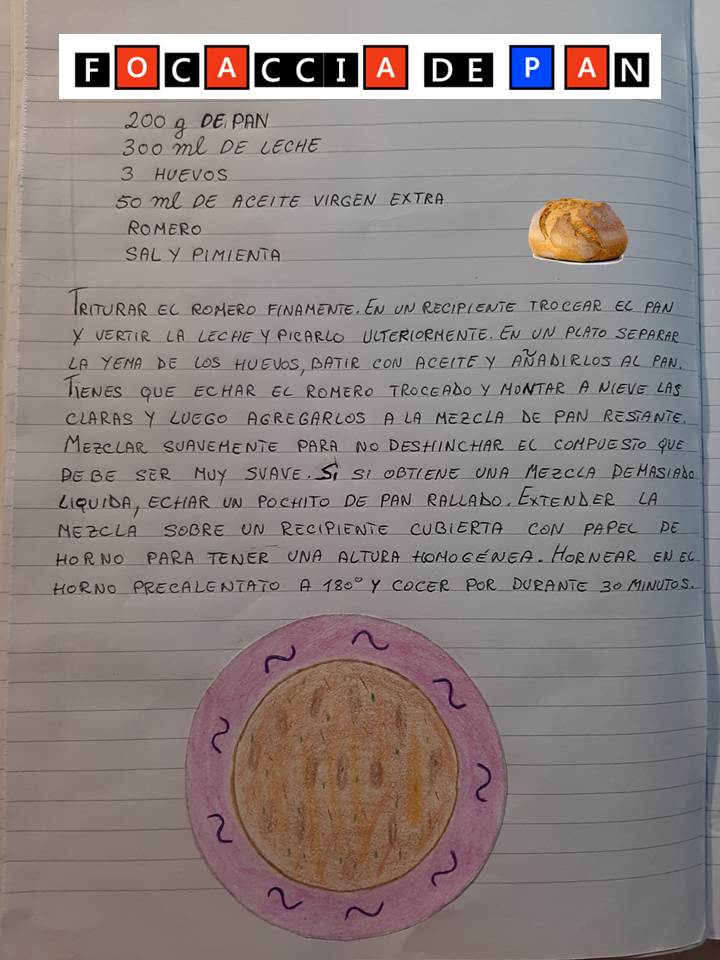 FOCACCIA DE PAN
200 g DE PAN
300 ml DE LECHE
3 HUEVOS
50 ml DE ACEITE VIRGEN EXTRA
ROMERO
SAL Y PIMIENTA
TRITURAR EL ROMERO FINAMENTE. EN UN RECIPIENTE TROCEAR EL PAN
Y VERTIR LA LECHE Y PICARLO ULTERIORMENTE. EN UN PLATO SEPARAR
LA YEMA DE LOS HUEVOS, BATIR CON ACEITE Y AÑADIRLOS AL PAN.
TIENES QUE ECHAR EL ROMERO TROCEADO Y MONTAR A NIEVE LAS
CLARAS Y LUEGO AGREGARLOS A LA MEZCLA DE PAN RESTANTE.
MEZCLAR SUAVEMENTE PARA NO DESHINCHAR EL COMPUESTO QUE
DEBE SER MUY SUAVE. SI SI OBTIENE UNA MEZCLA DEMASIADO
LIQUIDA, ECHAR UN POCHITO DE PAN RALLADO. EXTENDER LA
MEZCLA SOBRE UN RECIPIENTE CUBIERTA CON PAPEL DE
HORNO PARA TENER UNA ALTURA HOMOGÉNEA. HORNEAR EN EL
HORNO PRECALENTATO A 180° Y COCER POR DURANTE 30 MINUTOS.